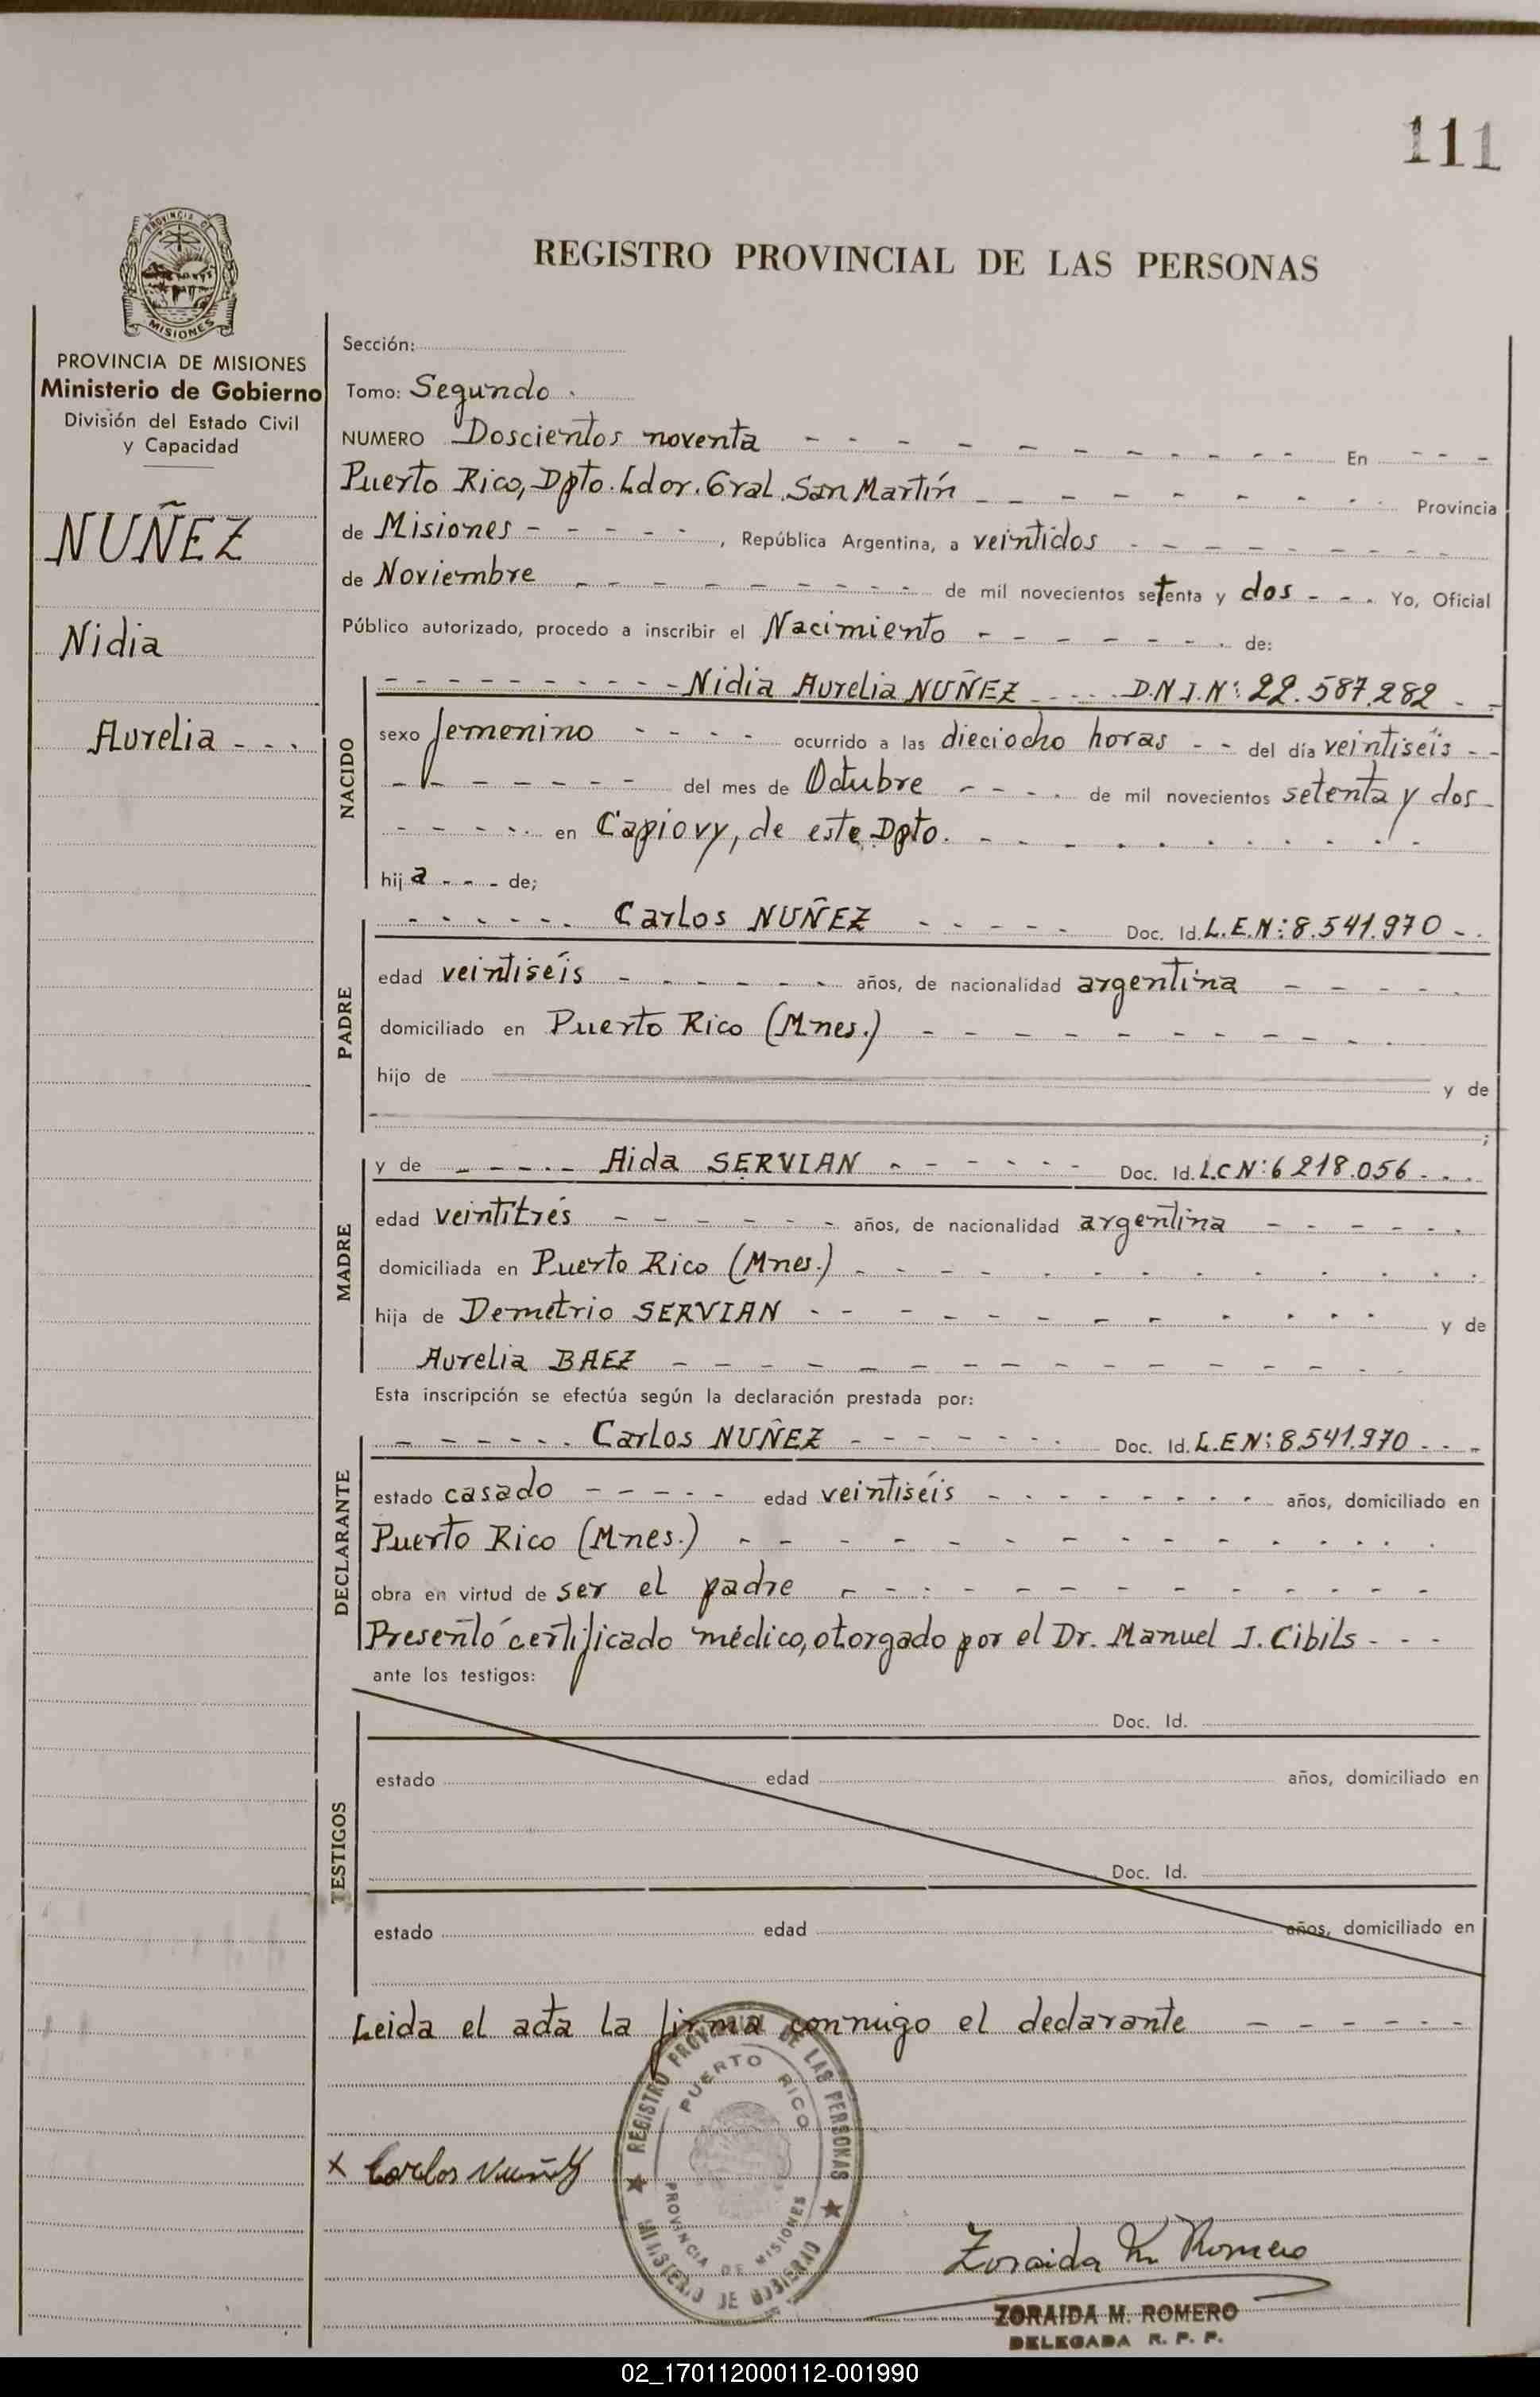 111
PROVINCIA DE
MISIONES
REGISTRO PROVINCIAL DE LAS PERSONAS
PROVINCIA DE MISIONES
Ministerio de Gobierno
División del Estado Civil
y Capacidad
NUÑEZ
Nidia
Aurelia - - -
Sección:
Tomo: Segundo.
NUMERO Doscientos noventa - - - En - - -
Puerto Rico, Dpto. Ldor. Gral. San Martín - - - Provincia
de Misiones - - - , República Argentina, a veintidos - - -
de Noviembre - - - de mil novecientos setenta y dos - - - Yo, Oficial
Público autorizado, procedo a inscribir el Nacimiento - - - de:
NACIDO
- - - Nidia Aurelia NUÑEZ - - - D.N.I.Nº: 22.587.282 - -
sexo femenino - - - ocurrido a las dieciocho horas - - del día veintiséis - -
- - - del mes de Octubre - - - de mil novecientos setenta y dos -
- - - en Capiovy, de este Dpto. - - -
hija - - - de;
PADRE
- - - Carlos NUÑEZ - - - Doc. Id. L.E.Nº: 8.541.970 - -
edad veintiséis - - - años, de nacionalidad argentina - - -
domiciliado en Puerto Rico (Mnes.) - - -
hijo de y de
;
MADRE
y de - - - Aida SERVIAN - - - Doc. Id. L.C Nº: 6 218.056 - - -
edad veintitrés - - - años, de nacionalidad argentina - - -
domiciliada en Puerto Rico (Mnes.) - - -
hija de Demetrio SERVIAN - - - y de
Aurelia BAEZ - - -
Esta inscripción se efectúa según la declaración prestada por:
DECLARANTE
- - - Carlos NUÑEZ - - - Doc. Id. L.E Nº: 8.541.970 - - -
estado casado - - - edad veintiséis - - - años, domiciliado en
Puerto Rico (Mnes.) - - -
obra en virtud de ser el padre - - -
Presentó certificado médico, otorgado por el Dr. Manuel J. Cibils - - -
ante los testigos:
TESTIGOS
Doc. Id.
estado edad años, domiciliado en
Doc. Id.
estado edad años, domiciliado en
Leida el acta la firma conmigo el declarante - - -
REGISTRO PROVINCIAL DE LAS PERSONAS
PUERTO RICO
PROVINCIA DE MISIONES
MINISTERIO DE GOBIERNO
x Carlos Nuñez
Zoraida M. Romero
ZORAIDA M. ROMERO
DELEGADA R. P. P.
02_170112000112-001990